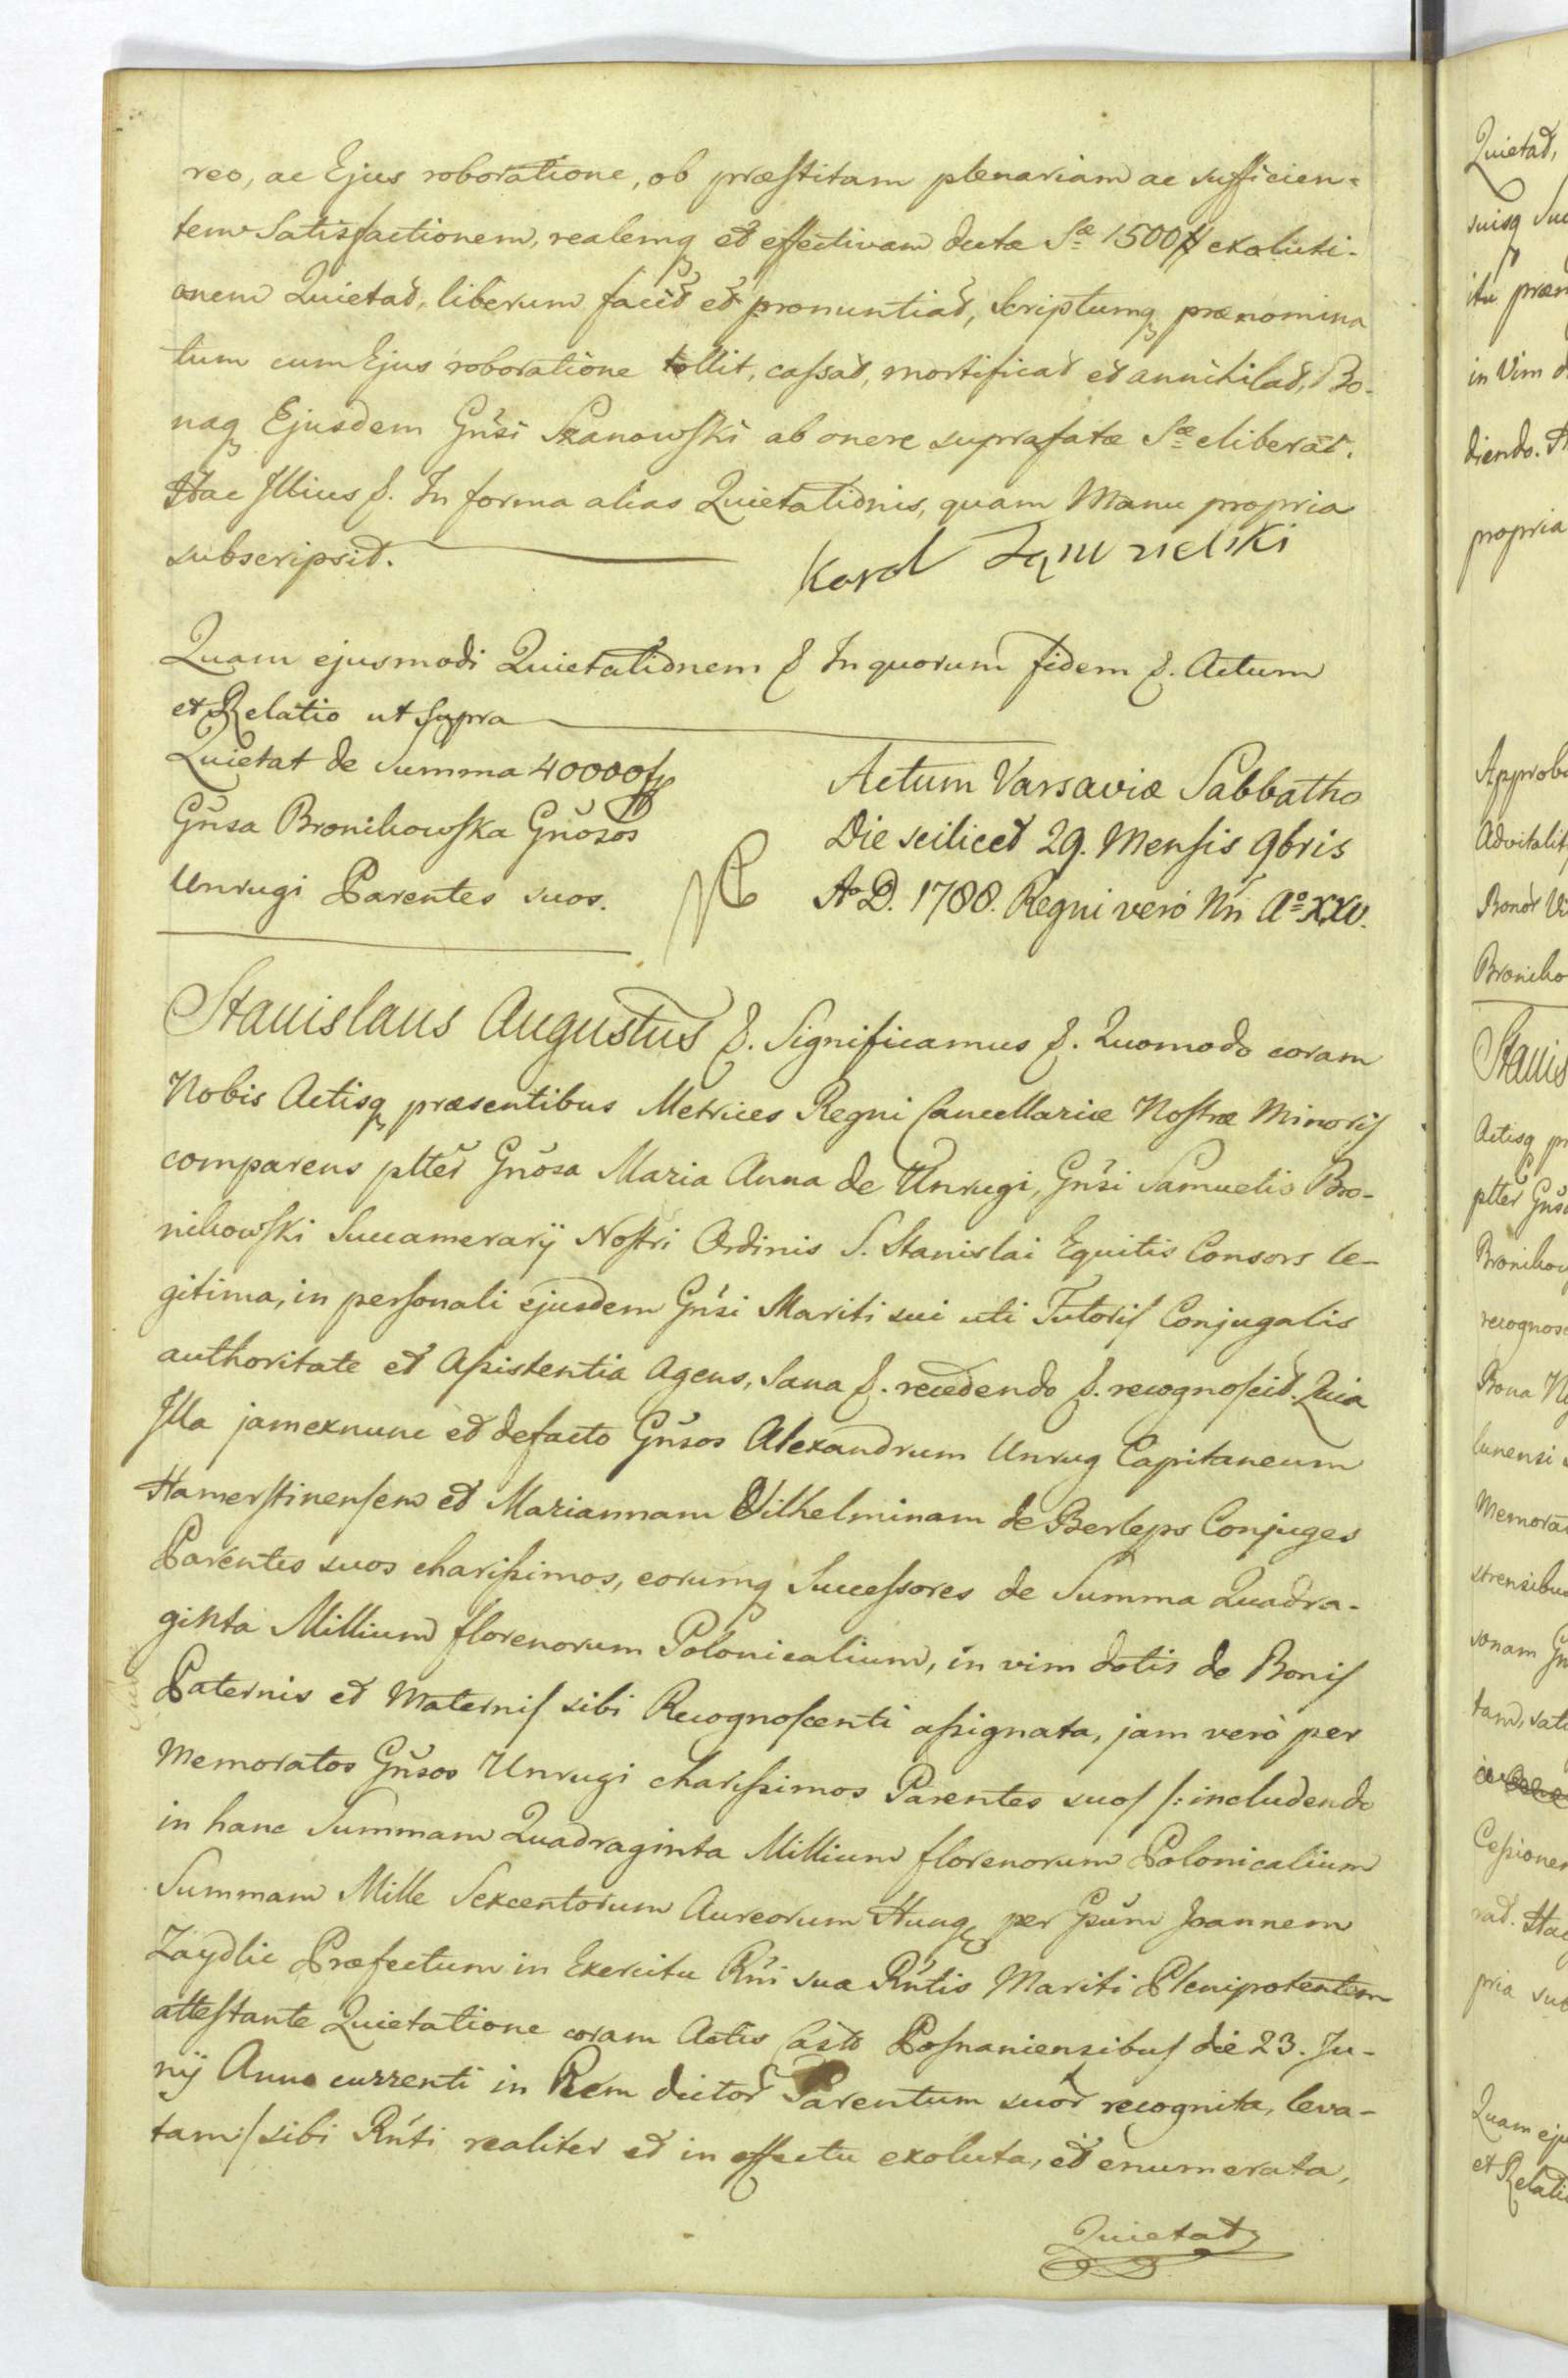 reo, ac Ejus roboratione, ob præstitam plenariam ac sufficien-
tem Satisfactionem, realemq et effectivam dictæ Sæ 1500 # exoluti-
onem Quietat, liberum facit et pronuntiat, Scriptumq prænomina
tum cum Ejus roboratione tollit, cassat, mortificat et annihilat, Bo-
naq Ejusdem Gnsi Szanowski ab onere suprafatæ Sæ eliberat.
Hac Illius &. In forma alias Quietationis, quam Manu propria
subscripsit.
Karol
Quam ejusmodi Quietationem & In quorum fidem &. Actum
et Relatio ut supra
Quietat de Summa 40000 fp
Gnsa Bronikowska Gnosos
Unrugi Parentes suos.
Actum Varsaviæ Sabbatho
Die scilicet 29. Mensis 9bris
Ao D. 1788. Regni vero Nri Ao XXV.
Stanislaus Augustus &. Significamus &. Quomodo coram
Nobis Actisq præsentibus Metrices Regni Cancellariæ Nostræ Minoris
comparens ptter Gnosa Maria Anna de Unrugi, Gnsi Samuelis Bro-
nikowski Succamerarij Nostri Ordinis S. Stanislai Equitis Consors le-
gitima, in personali ejusdem Gnsi Mariti sui uti Tutoris Conjugalis
authoritate et Assistentia Agens, Sana &. recedendo &. recognoscit. Quia
Illa jam exnunc et defacto Gnsos Alexandrum Unrug Capitaneum
Hamerstinensem et Mariannam Vilhelminam de Berleps Conjuges
Parentes suos charissimos, eorumq Successores de Summa Quadra-
ginta Millium florenorum Polonicalium, in vim dotis de Bonis
Paternis et Maternis sibi Recognoscenti assignata, jam verò per
Memoratos Gnsos Unrugi charissimos Parentes suos /: includendo
in hanc Summam Quadraginta Millium florenorum Polonicalium
Summam Mille Sexcentorum Aureorum Hung per Gsum Joannem
Zaydlic Præfectum in Exercitu Rni sua Rntis Mariti Plenipotentem
attestante Quietatione coram Actis Castr Posnaniensibus die 23. Ju-
nij Anno currenti in Rem dictor Parentum suor recognita, leva-
tam :/ sibi Rnti realiter et in effectu exoluta, et enumerata,
Quietat